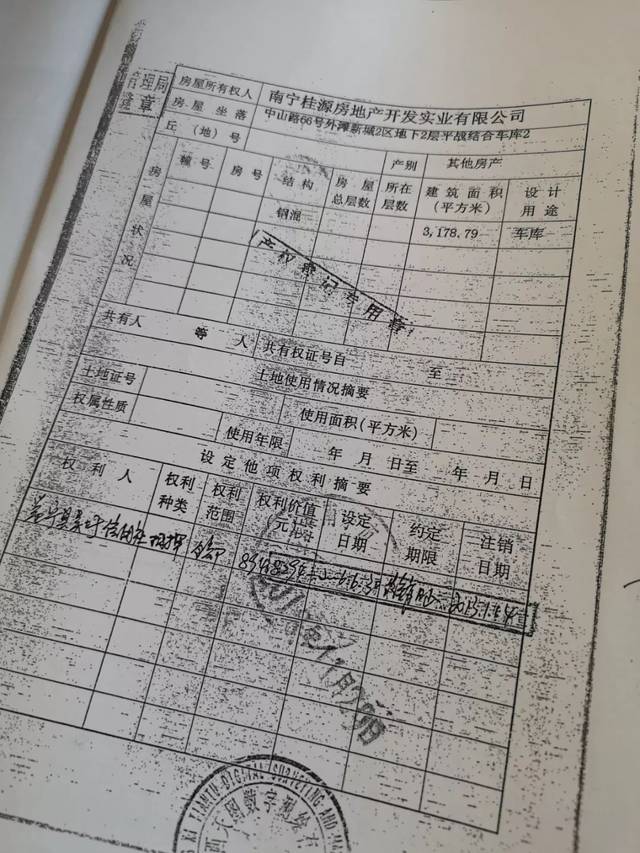 管理局
章
房屋所有权人 南宁桂源房地产开发实业有限公司
房屋坐落 中山路66号外滩新城2区地下2层平战结合车库2
丘(地)号 产别 其他房产
房屋状况 幢号 房号 结构 房屋总层数 所在层数 建筑面积(平方米) 设计用途
钢混 3,178.79 车库
产权登记专用章
共有人 等 人 共有权证号自 至
土地使用情况摘要
土地证号 使用面积(平方米)
权属性质 使用年限 年 月 日至 年 月 日
设定他项权利摘要
权利人 权利种类 权利范围 权利价值(元) 设定日期 约定期限 注销日期
抵押 全部
11月29日
XI TIANTU DIGITAL SURVEYING AND
西天图数字测绘有